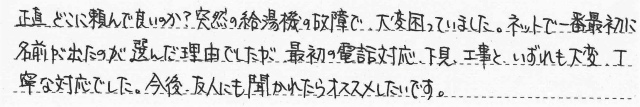 正直どこに頼んで良いのか？突然の給湯機の故障で、大変困っていました。ネットで一番最初に
名前が出たのが選んだ理由でしたが、最初の電話対応、下見、工事と、いずれも大変、丁
寧な対応でした。今後、友人にも聞かれたらオススメしたいです。